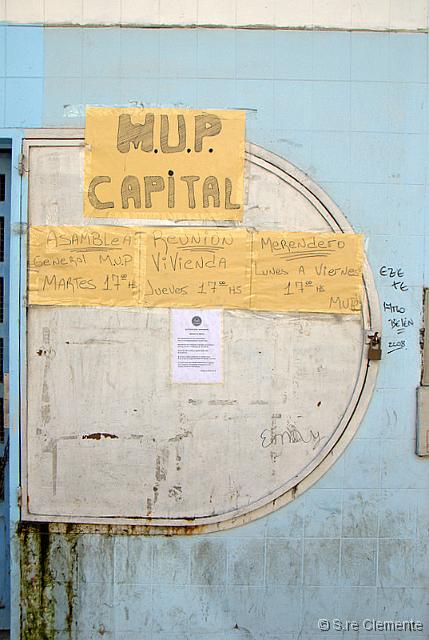 M.U.P.
CAPITAL
ASAMBLEA
General M.U.P
MARTES 17⁰⁰ HS
REUNION
ViViENDA
Jueves 17⁰⁰ HS
MerenDero
Lunes A Viernes
17⁰⁰ HS
MUP
EZE
TE
AMO
BELÉN
2008
© S.re Clemente